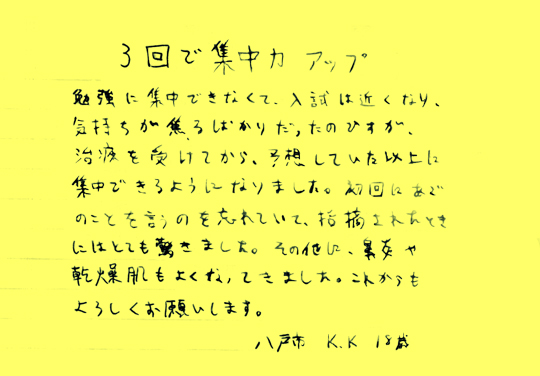 3回で集中力アップ
勉強に集中できなくて、入試は近くなり、
気持ちが焦るばかりだったのですが、
治療を受けてから、予想していた以上に
集中できるようになりました。初回にあご
のことを言うのを忘れていて、指摘されたとき
にはとても驚きました。その他に、鼻炎や
乾燥肌もよくなってきました。これからも
よろしくお願いします。
八戸市 K.K 18歳